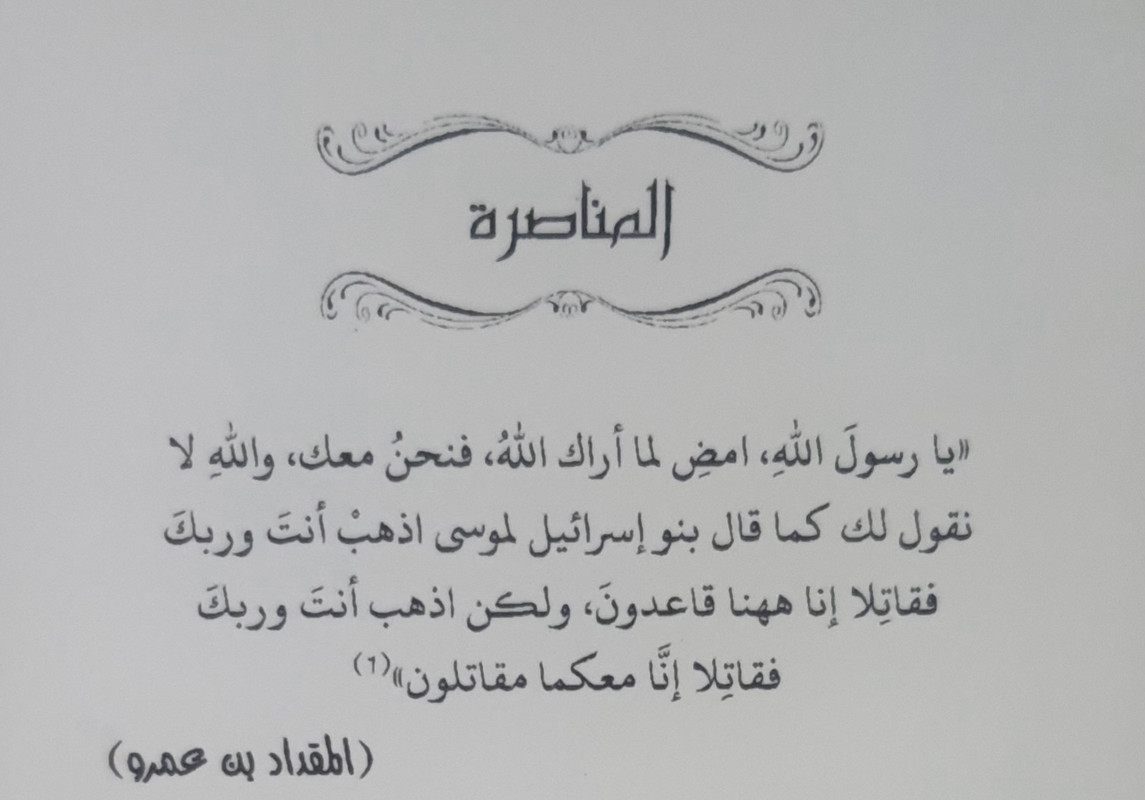 المناصرة
«يا رسولَ اللهِ، امضِ لما أراك اللهُ، فنحنُ معك، واللهِ لا
نقول لك كما قال بنو إسرائيل لموسى اذهبْ أنتَ وربكَ
فقاتِلا إنا ههنا قاعدونَ، ولكن اذهب أنتَ وربكَ
فقاتِلا إنَّا معكما مقاتلون»(١)
(المقداد بن عمرو)